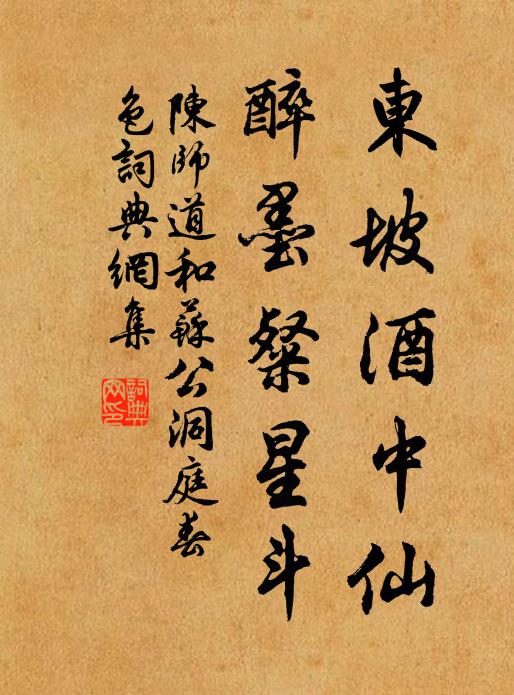 東坡酒中仙
醉墨粲星斗
陳師道和蘇公洞庭春
色詞典網集
詞典網印